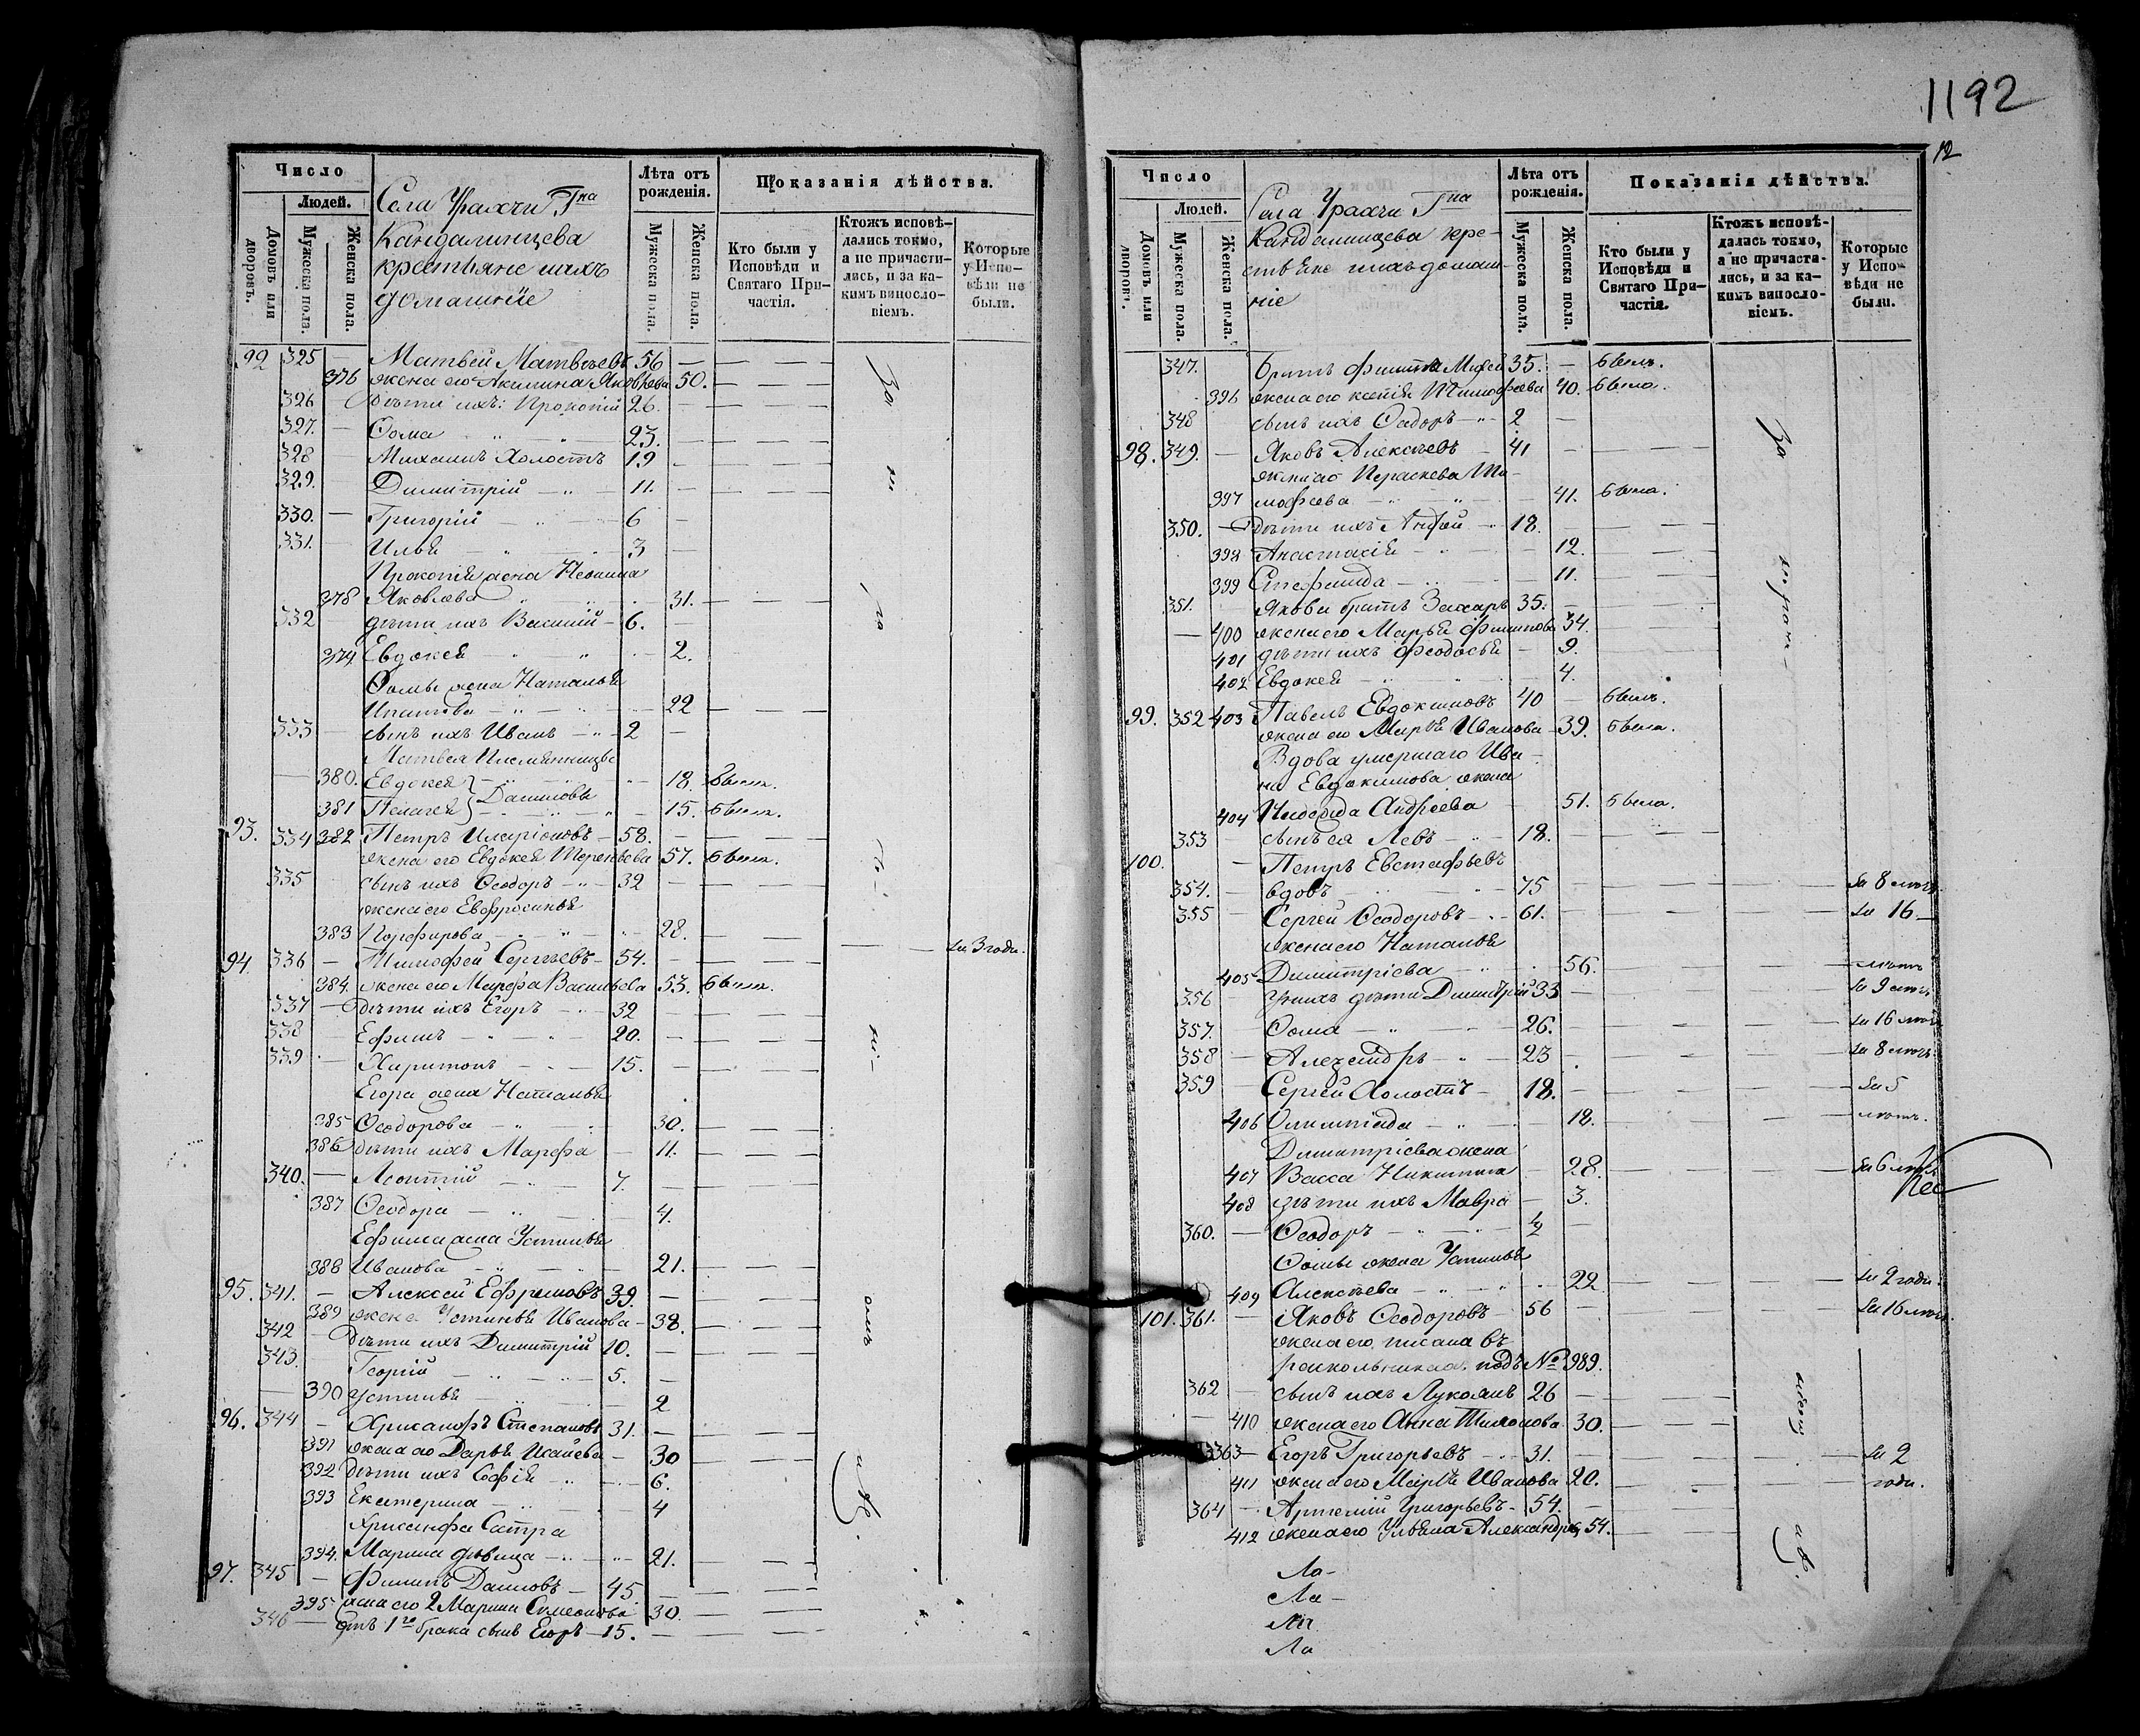 1192
12
Число
Людей.
Домовъ или дворовъ.
Мужеска пола.
Женска пола.
Села Урахчи Гна
Кандалинцева
крестьяне ихъ
домашніе
Лѣта отъ рожденія.
Мужеска пола.
Женска пола.
Показанія дѣйства.
Кто были у Исповѣди и Святаго Причастія.
Ктожъ исповѣдались токмо, а не причастились, и за какимъ винословіемъ.
Которые у Исповѣди не были.
92 325 — Матвей Матвѣевъ 56 —
376 жена его Акилина Яковлева 50.
326 — дѣти ихъ: Прокопій 26.
327. — Ѳома 23.
328 Михаилъ Холостъ 19
329. — Димитрій 11.
330. — Григорій 6
331. — Илья 3
Прокопія жена
378 Яковлева 31.
332 дѣти ихъ Василій 6.
379 Евдокея 2.
Ѳомы жена Наталья
22
333 — сынъ ихъ Иванъ 2
Матвея Племянницы
380. Евдокея 18 была.
381 Пелагея } Даниловы 15. была.
93. 334 382 Петръ Иларіоновъ 58.
жена его Евдокея Терентьева 57. была.
335 сынъ ихъ Ѳеодоръ 32
жена его Евфросинья
383 Порфирова 28.
94 336 — Тимофей Сергѣевъ 54. за 3 года.
384. жена его Марфа Васильева 53. была.
337 — дѣти ихъ Егоръ 32
338 — Ефимъ 20.
339 — Харитонъ 15.
Егора жена Наталья
385 Ѳеодорова 30.
386 дѣти ихъ Марфа 11.
340. — Леонтій 7.
387 Ѳеодора 4.
Ефима жена Устинья
388 Иванова 21.
95. 341. — Алексей Ефремовъ 39.
389 жена Устинья Иванова 38.
342 — дѣти ихъ Димитрій 10.
343. Георгій 5.
390 Устинья 2
96. 344 — Хрисанфъ Степановъ 31.
391 жена его Дарья Исаева 30
392 дѣти ихъ Софія 6.
393 Екатерина 4
Хрисанфа Сестра
394. Марина дѣвица 21.
97. 345 — Филипъ Даниловъ 45.
395 жена его 2 Марина Симеонова 30.
346 — отъ 1го брака сынъ Егоръ 15.
Число
Людей.
Домовъ или дворовъ.
Мужеска пола.
Женска пола.
Села Урахчи Гна
Кандалинцева кре-
стьяне ихъ домаш-
ніе
Лѣта отъ рожденія.
Мужеска пола.
Женска пола.
Показанія дѣйства.
Кто были у Исповѣди и Святаго Причастія.
Ктожъ исповѣдались токмо, а не причастились, и за какимъ винословіемъ.
Которые у Исповѣди не были.
347. братъ Филиппа 35. — былъ.
396 жена его Ксенія Тимофеева 40. была.
348 сынъ ихъ Ѳедоръ 2
98. 349. — Яковъ Алексѣевъ 41
жена его Параскева Ти-
397 мофеева 41. была.
350. — дѣти ихъ 18.
398 Анастасія 12.
399 11.
351. Якова братъ Захаръ 35.
— 400 жена его Марья Филипова 34.
401 дѣти ихъ Феодосья 9.
402 Евдокея 4.
99. 352 403 Павелъ Евдокимовъ 40 — былъ.
жена его Марья Иванова 39. была.
Вдова умершаго Ива-
на Евдокимова жена
404 Андреева 51. была.
353 сынъ ея Левъ 18.
100. — Петръ Евстафьевъ
354. — вдовъ 75 за 8 лѣтъ
355 — Сергей Ѳеодоровъ 61. за 16
жена его Наталья
405 Димитріева 56. лѣтъ
356 — у нихъ дѣти Димитрій 33 за 9 лѣтъ
357. Ѳома 26. за 16 лѣтъ
358 — Александръ 23 за 8 лѣтъ
359 — Сергей Холостъ 18. за 5
406 Олимпіада 18. лѣтъ.
Димитріева жена
407 Васса Никитина 28. за 6 лѣтъ
408 дѣти ихъ Мавра 3.
360. — Ѳеодоръ ½
Ѳомы жена Устинья
409 Алексѣева 22 за 2 года.
101. 361. — Яковъ Ѳеодоровъ 56 за 16 лѣтъ.
жена его писана въ
раскольникахъ подъ № 989.
362 — сынъ ихъ Лукоянъ 26
410 жена его Анна Тихонова 30.
363 — Егоръ Григорьевъ 31. за 2
411 жена его Марья Иванова 20. года.
364 — Артемій Григорьевъ 54.
412 жена его Ульяна Александр. 54.
Ла-
Ла-
Ла
Ла